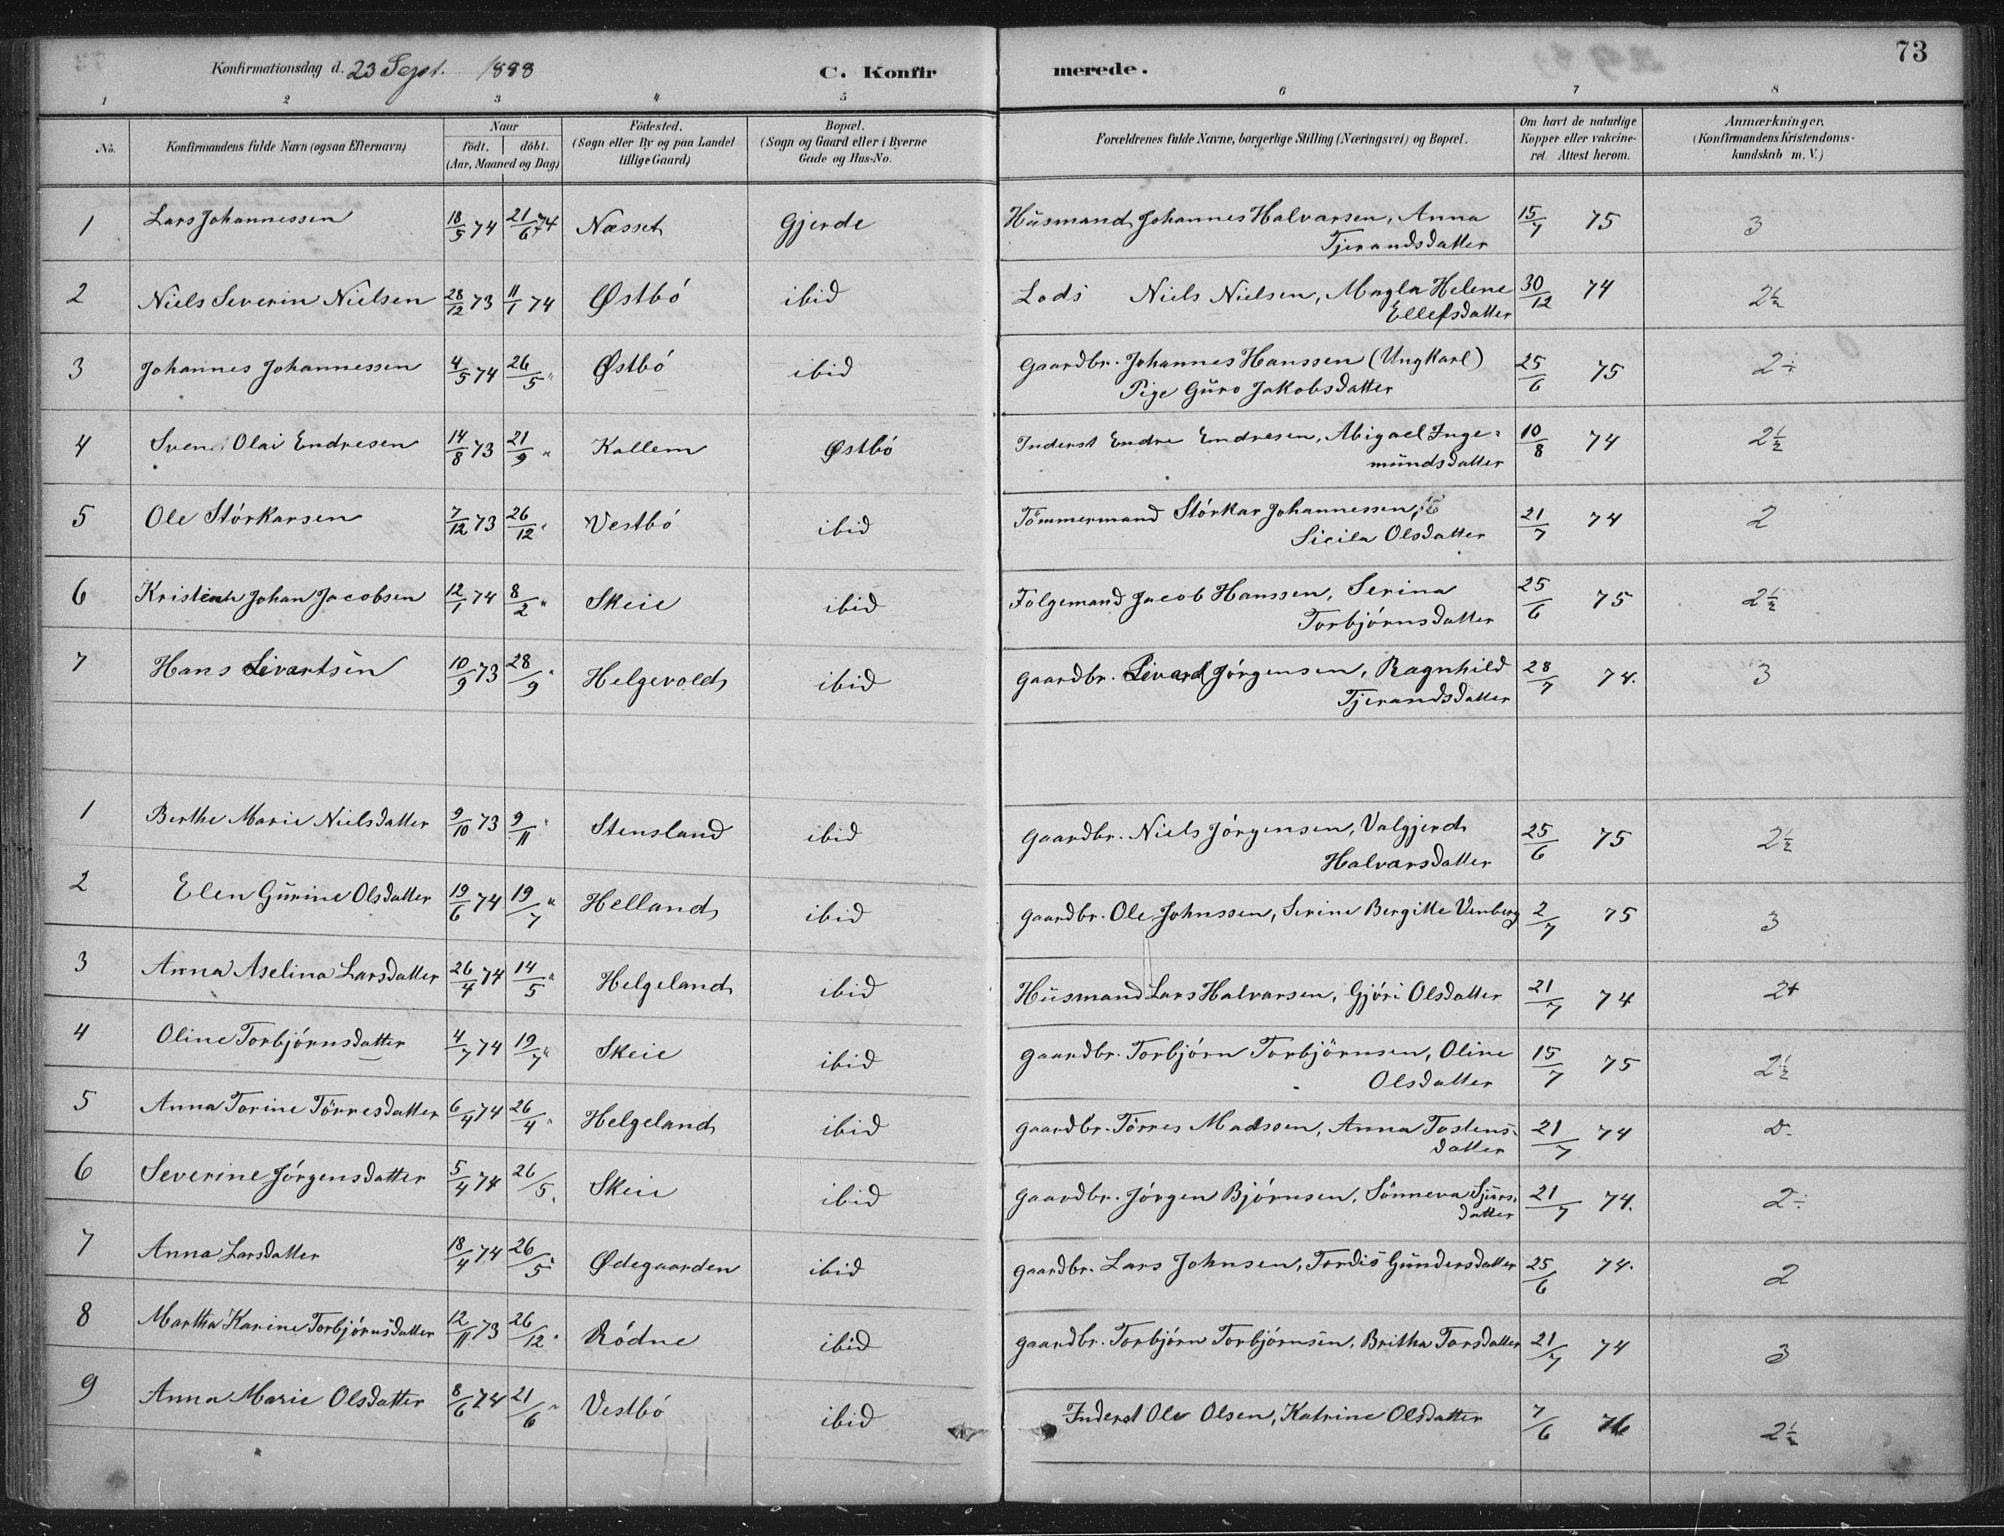 73
Konfirmationsdag d. 23 Sept. 1888 C. Konfir merede.
1 2 3 4 5 6 7 8
No. Konfirmandens fulde Navn (ogsaa Efternavn) Naar födt. döbt. (Aar, Maaned og Dag) Födested. (Sogn eller By og paa Landet tillige Gaard) Bopæl. (Sogn og Gaard eller i Byerne Gade og Hus-No. Forældrenes fulde Navne, borgerlige Stilling (Næringsvei) og Bopæl. Om havt de naturlige Kopper eller vakcineret. Attest herom. Anmærkninger. (Konfirmandens Kristendomskundskab m. V.)
1 Lars Johannessen 18/5 74 21/6 74 Næsset Gjerde Husmand Johannes Halvarsen, Anna 15/7 75 3
Tjerandsdatter
2 Niels Severin Nielsen 28/12 73 11/1 74 Østbó ibid Lods Niels Nielsen, Magla Helene 30/12 74 2½
Ellefsdatter
3 Johannes Johannessen 4/5 74 26/5 " Østbó ibid Gaardbr. Johannes Hanssen (Ungkarl) 25/6 75 2÷
Pige Guro Jakobsdatter
4 Sven Olai Endresen 14/8 73 21/9 " Kallem Østbó Inderst Endre Endresen, Abigael Inge- 10/8 74 2½
mundsdatter
5 Ole Stórkarsen 7/12 73 26/12 " Vestbó ibid Tömmermand Stórkar Johannessen, 21/7 74 2
Sicila Olsdatter
6 Kristen Johan Jacobsen 12/1 74 8/2 " Skeie ibid Folgemand Jacob Hanssen, Serina 25/6 75 2½
Torbjórnsdatter
7 Hans Sivartsen 10/9 73 28/9 " Helgevold ibid Gaardbr. Sivard Jórgensen, Ragnhild 28/7 74. 3
Tjerandsdatter
1 Berthe Marie Nielsdatter 9/10 73 9/11 " Stensland ibid Gaardbr. Niels Jórgensen, Valgjerd 25/6 75 2½
Halvarsdatter
2 Elen Gurine Olsdatter 19/6 74 19/7 " Helland ibid Gaardbr. Ole Johnssen, Serine Bergitte Venberg 2/7 75 3
3 Anna Aselina Larsdatter 26/4 74 14/5 " Helgeland ibid Husmand Lars Halvarsen, Gjóri Olsdatter 21/7 74 2+
4 Oline Torbjórnsdatter 4/7 74 19/7 " Skeie ibid Gaardbr. Torbjórn Torbjórnsen, Oline 15/7 75 2½
Olsdatter
5 Anna Torine Törresdatter 6/4 74 26/4 " Helgeland ibid Gaardbr. Törres Madssen, Anna Tostens- 21/7 74 2-
datter
6 Severine Jórgensdatter 5/4 74 26/5 " Skeie ibid Gaardbr. Jórgen Bjórnsen, Sónneva Sjurs- 21/7 74. 2÷
datter
7 Anna Larsdatter 18/4 74 26/5 " Ødegaarden ibid Gaardbr. Lars Johnsen, Tordis Gundersdatter 25/6 74. 2
8 Martha Karine Torbjórnsdatter 12/11 73 26/12 " Ródne ibid Gaardbr. Torbjórn Torbjórnsen, Britha Torsdatter 21/7 74 3
9 Anna Marie Olsdatter 8/6 74 21/6 " Vestbó ibid Inderst Ole Olsen, Katrine Olsdatter 7/6 76 2½